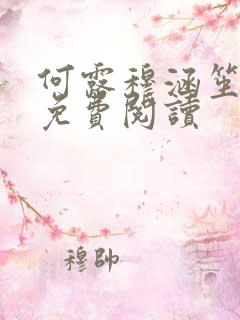 何露穆涵笙
免費閱讀
穆帥